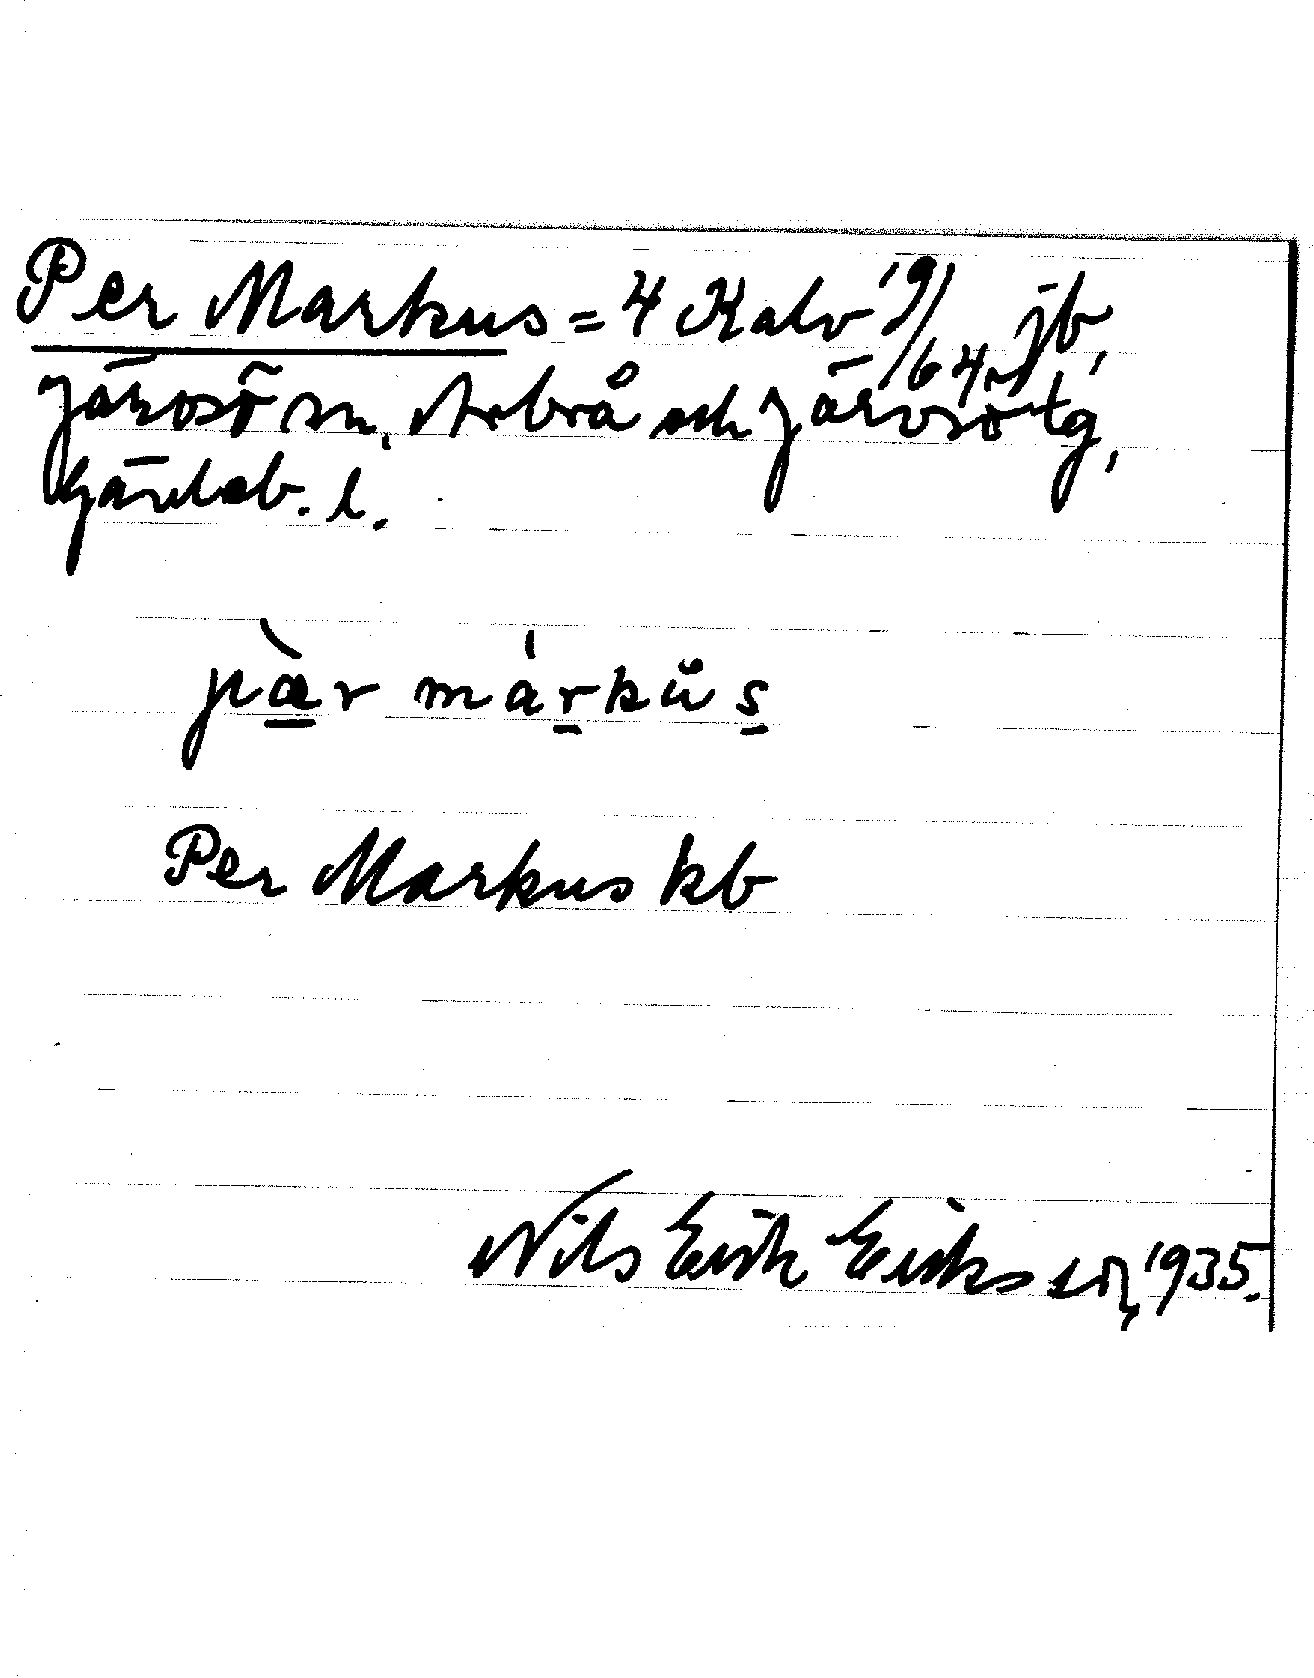 Per Markus = 4 Kalv 19/64 jb,
Järvsö sn, Arbrå och Järvsö tg,
Gävleb. l.
pàr márkůs
Per Markus kb
Nils Erik Eriksson, 1935.